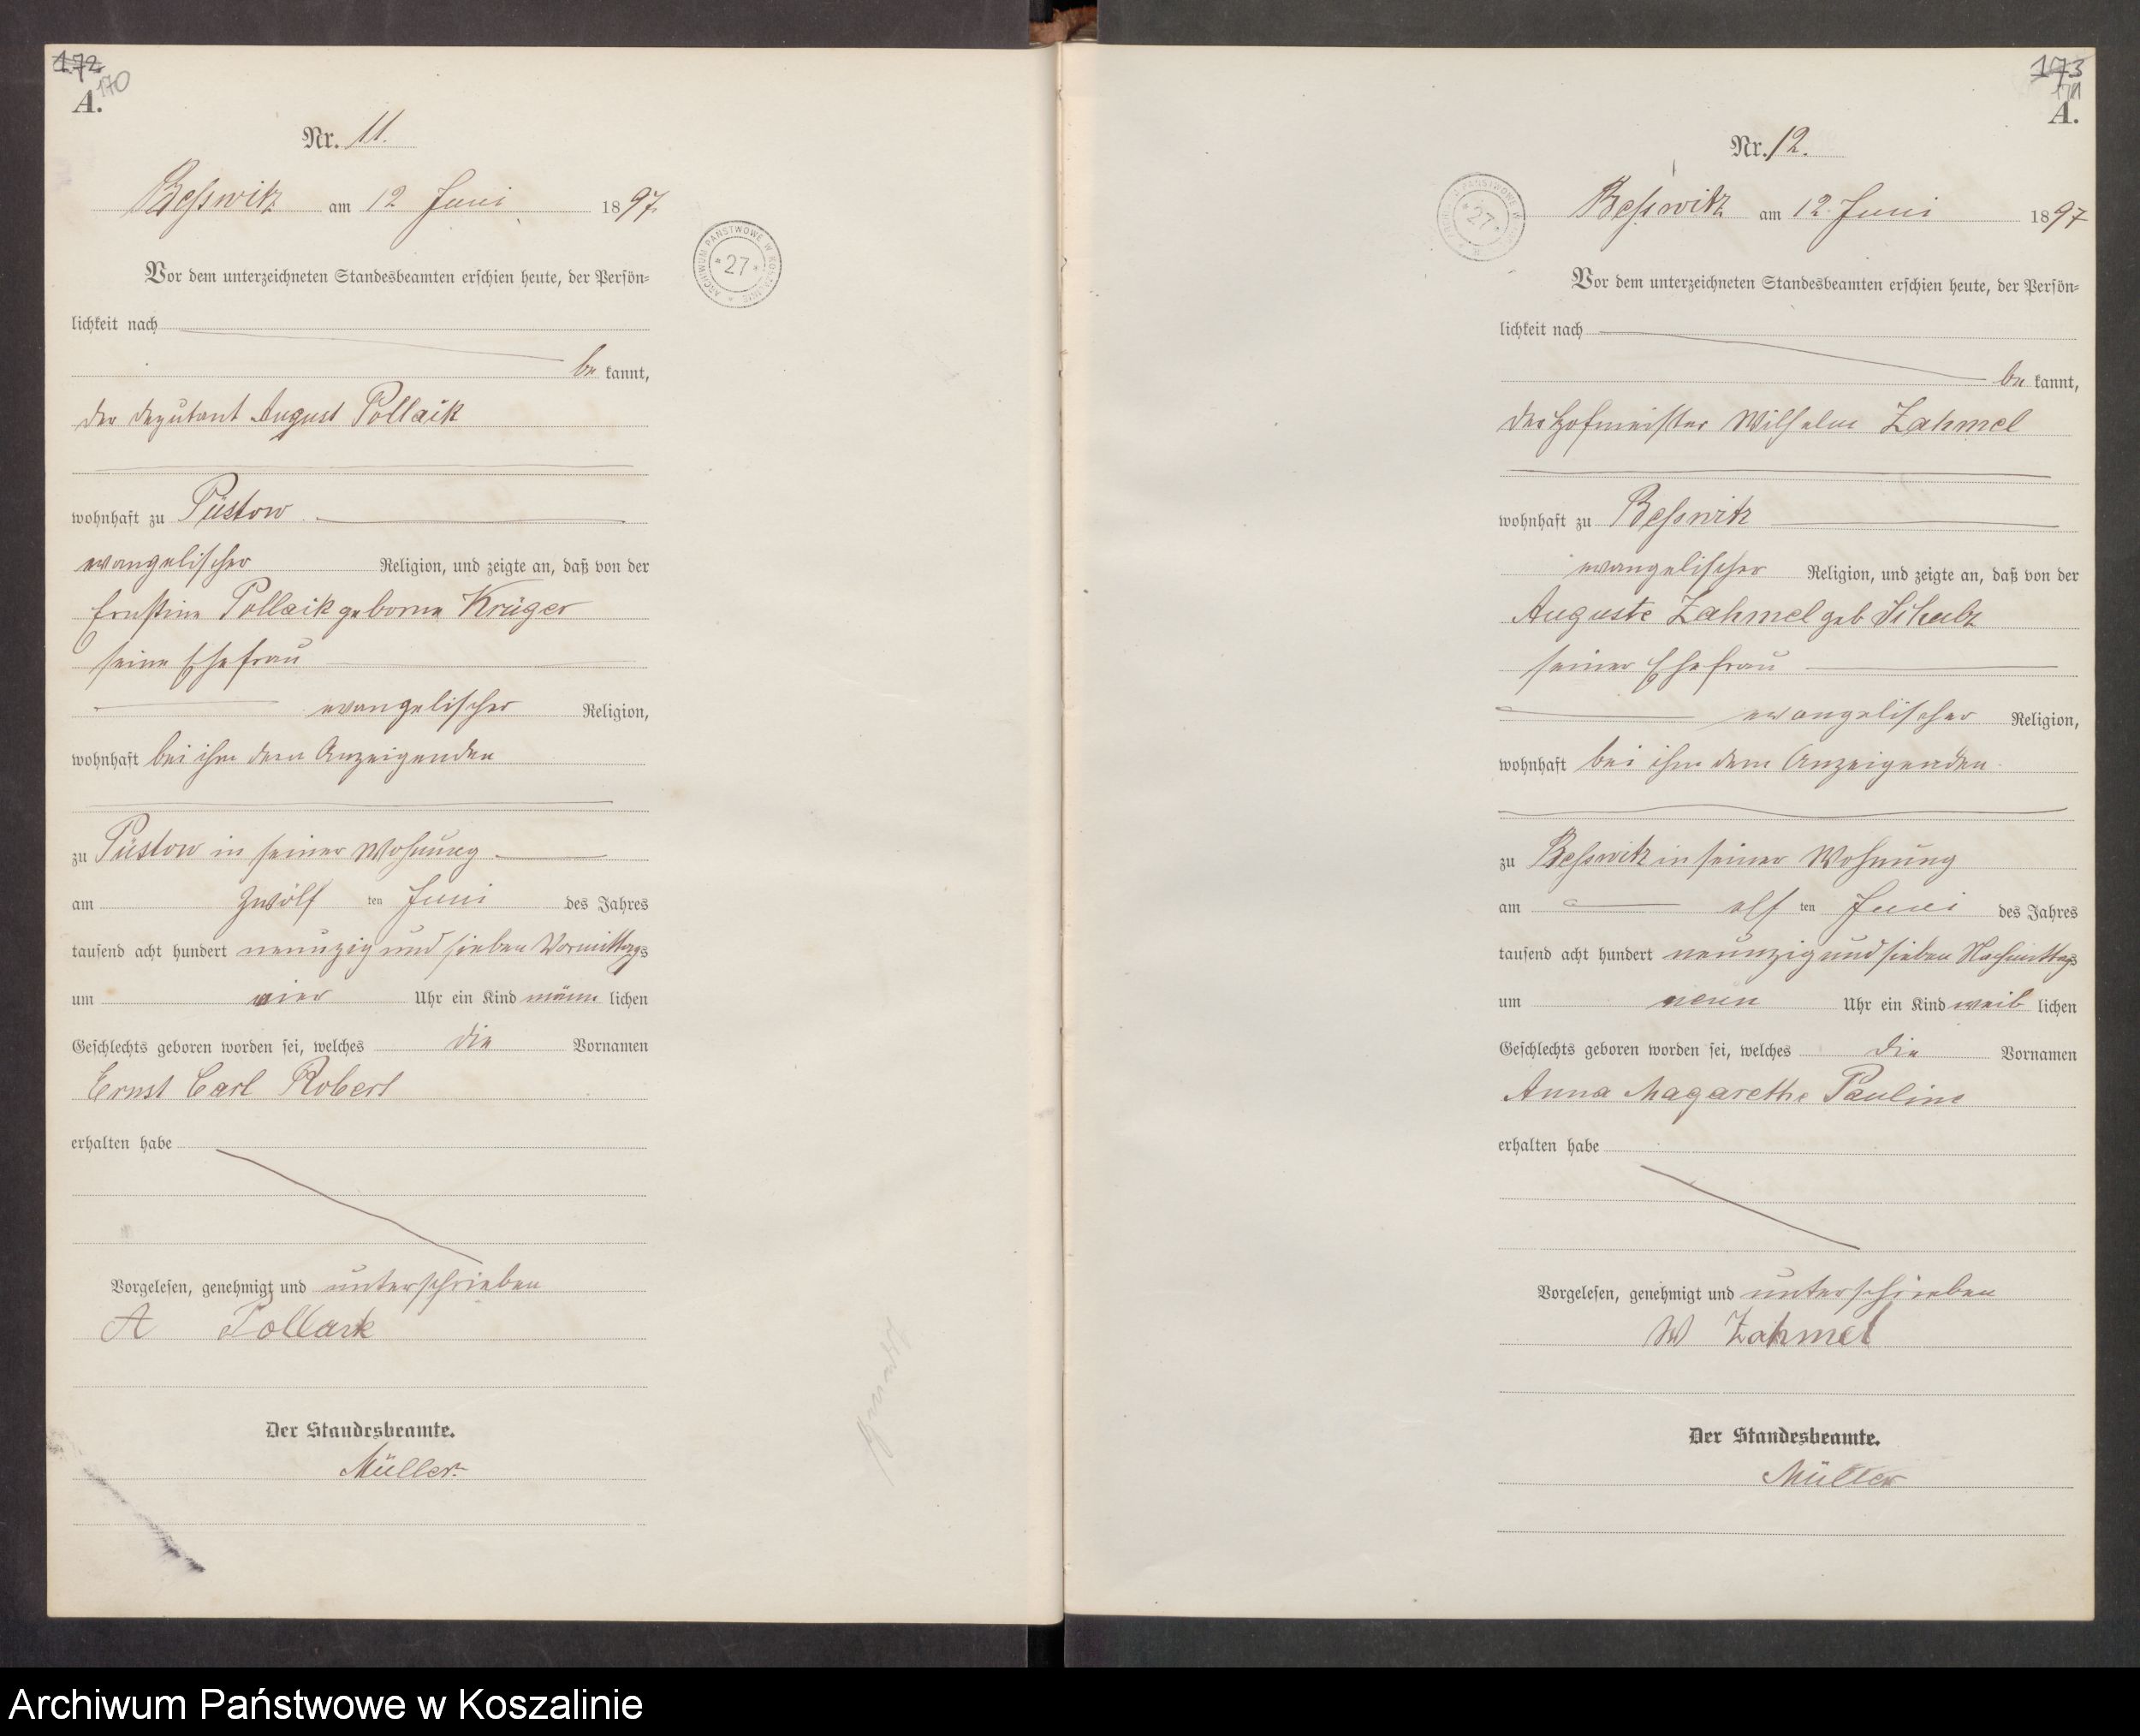 172
170
A.
Nr. 11.
Beßwitz am 12 Juni 1897.
Vor dem unterzeichneten Standesbeamten erschien heute, der Persön-
lichkeit nach
be kannt,
der Deputant August Pollaik
wohnhaft zu Püstow
evangelischer Religion, und zeigte an, daß von der
Ernstine Pollaik geborne Krüger
seine Ehefrau
evangelischer Religion,
wohnhaft bei ihm dem Anzeigenden
zu Püstow in seiner Wohnung
am zwölf ten Juni des Jahres
tausend acht hundert neunzig und sieben Vormittags
um vier Uhr ein Kind männ lichen
Geschlechts geboren worden sei, welches die Vornamen
Ernst Carl Robert
erhalten habe
Vorgelesen, genehmigt und unterschrieben
A Pollark
Der Standesbeamte.
Müller.
ARCHIWUM PAŃSTWOWE W KOSZALINIE
* 27 *
173
171
A.
Nr. 12.
Beßwitz am 12. Juni 1897
Vor dem unterzeichneten Standesbeamten erschien heute, der Persön-
lichkeit nach
be kannt,
der Hofmeister Wilhelm Zahmel
wohnhaft zu Beßwitz
evangelischer Religion, und zeigte an, daß von der
Auguste Zahmel geb Schulz
seiner Ehefrau
evangelischer Religion,
wohnhaft bei ihm dem Anzeigenden
zu Beßwitz in seiner Wohnung
am elf ten Juni des Jahres
tausend acht hundert neunzig und sieben Nachmittags
um neun Uhr ein Kind weib lichen
Geschlechts geboren worden sei, welches die Vornamen
Anna Magarethe Pauline
erhalten habe
Vorgelesen, genehmigt und unterschrieben
W Zahmel
Der Standesbeamte.
Müller
* 27 *
Archiwum Państwowe w Koszalinie